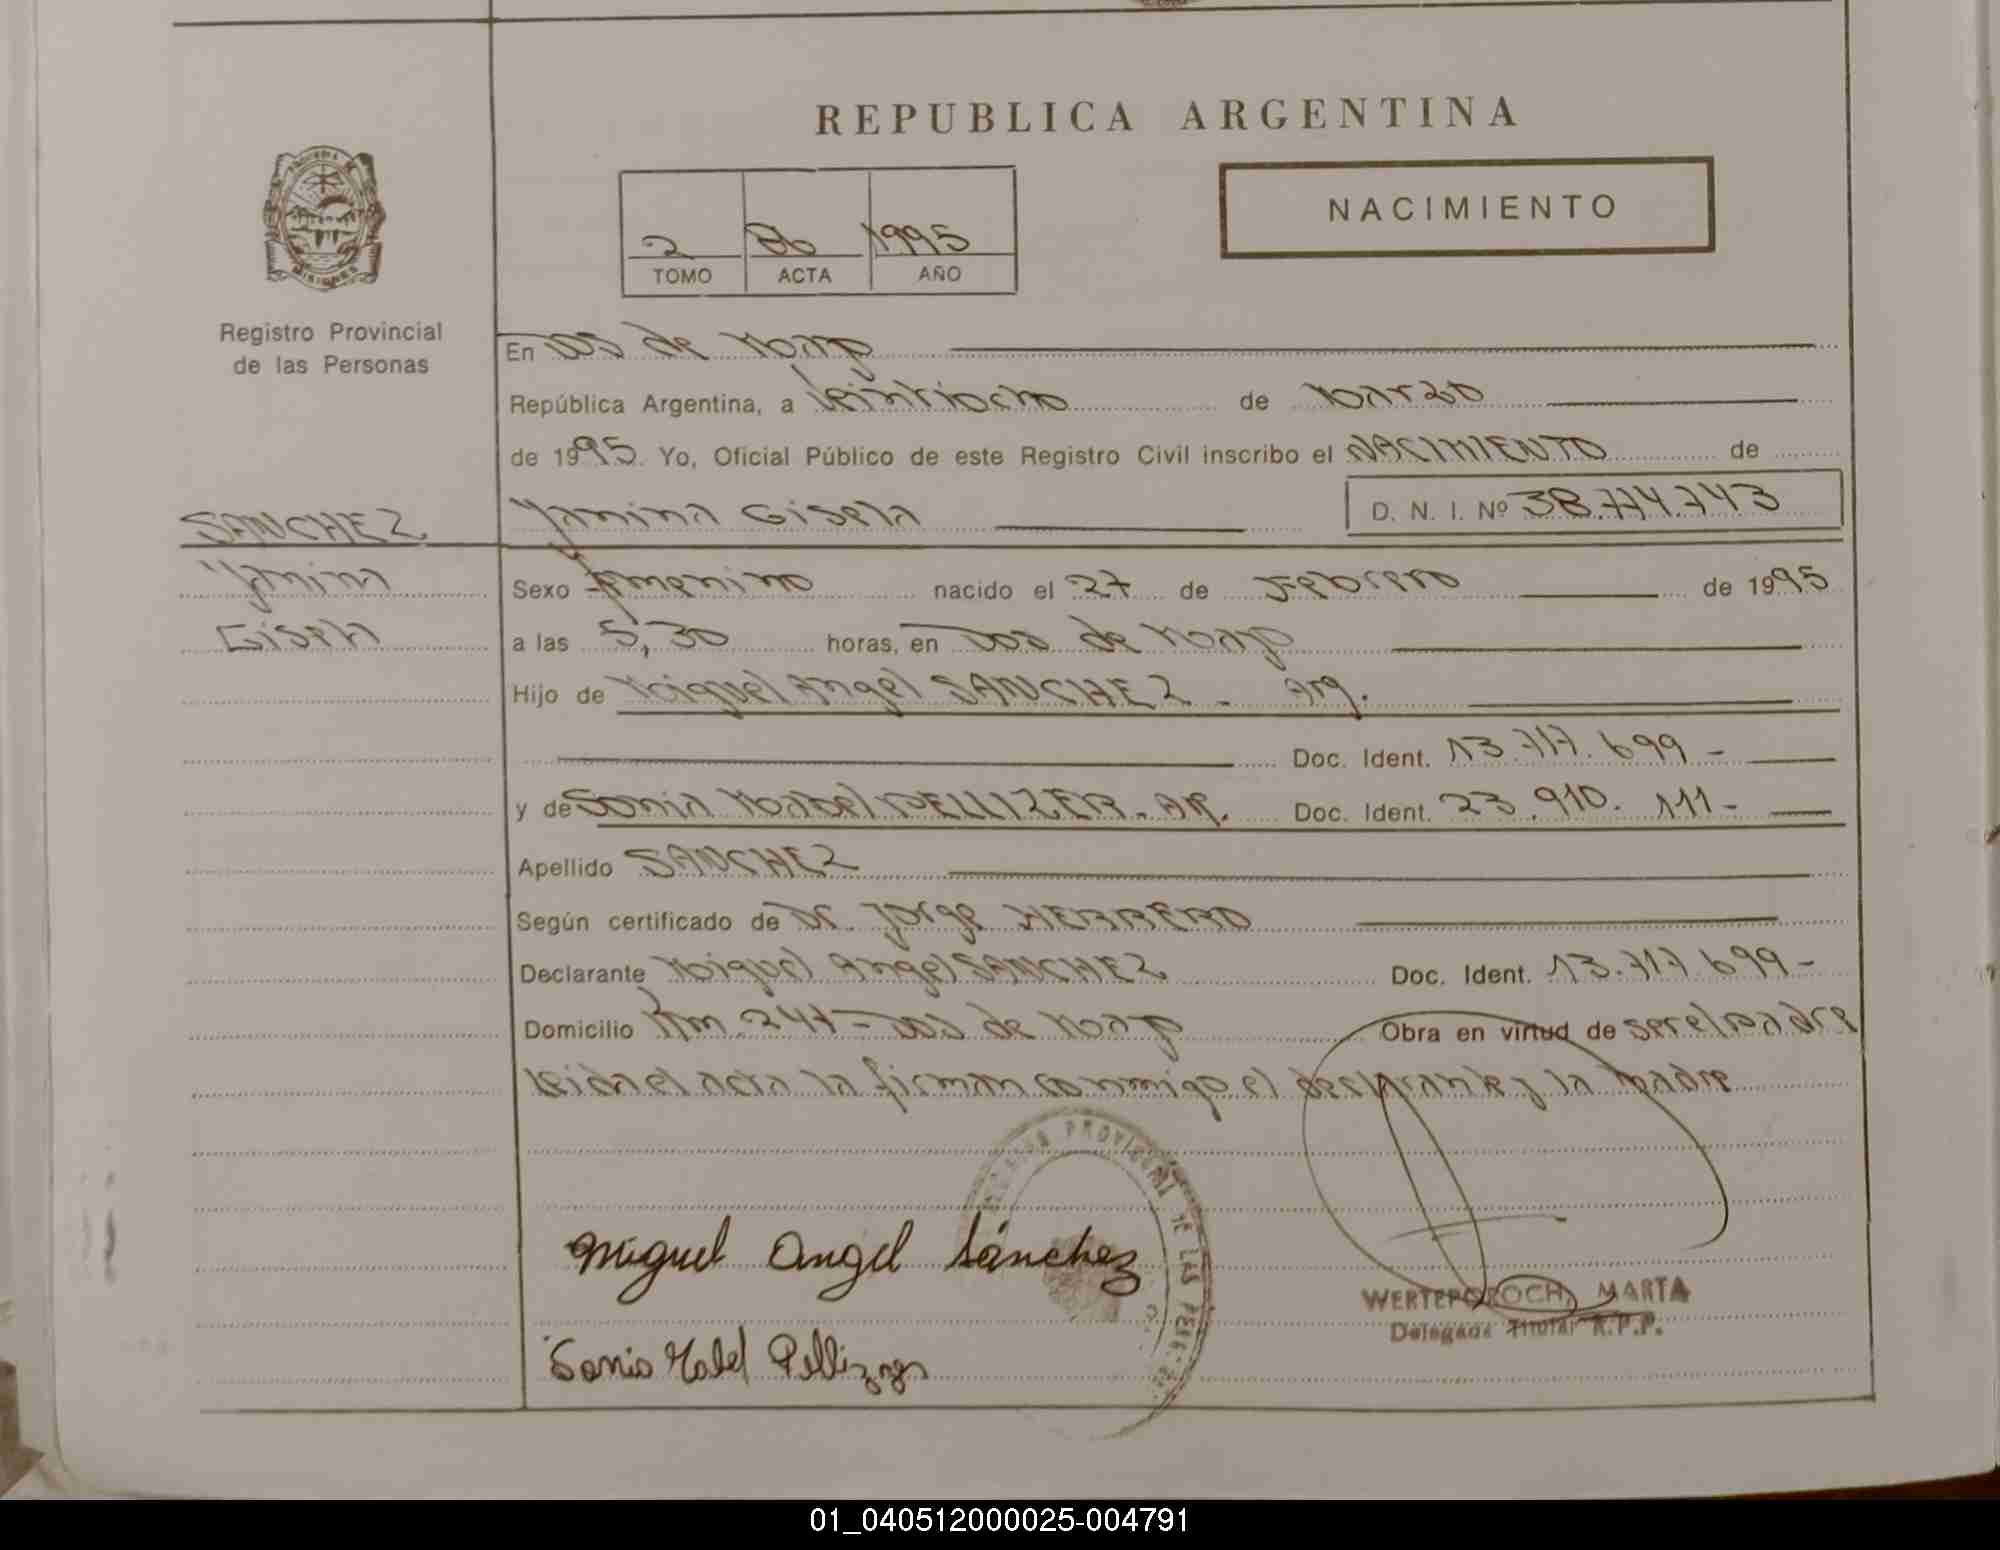 REPUBLICA ARGENTINA
NACIMIENTO
2 86 1995
TOMO ACTA AÑO
MISIONES
Registro Provincial
de las Personas
En Dos de Mayo
República Argentina, a Veintiocho de Marzo
de 1995. Yo, Oficial Público de este Registro Civil inscribo el NACIMIENTO de
SANCHEZ
Yanina Gisela D. N. I. Nº 38.774.743
Yanina
Gisela
Sexo femenino nacido el 27 de Febrero de 1995
a las 5,30 horas, en Dos de Mayo
Hijo de Miguel Angel SANCHEZ - Arg.
Doc. Ident. 13.717.699 -
y de Sonia Mabel PELLIZER - Ar. Doc. Ident. 23.910.111 -
Apellido SANCHEZ
Según certificado de Dr. Jorge HERRERO
Declarante Miguel Angel SANCHEZ Doc. Ident. 13.717.699 -
Domicilio Km. 247 - Dos de Mayo Obra en virtud de ser el padre
leida el acta la firman conmigo el declarante y la madre
PROVINCIAL DE LAS PERS
Miguel Angel Sánchez
WERTEPOROCH, MARTA
Delegada Titular R.P.P.
Sonia Mabel Pellizer
01_040512000025-004791